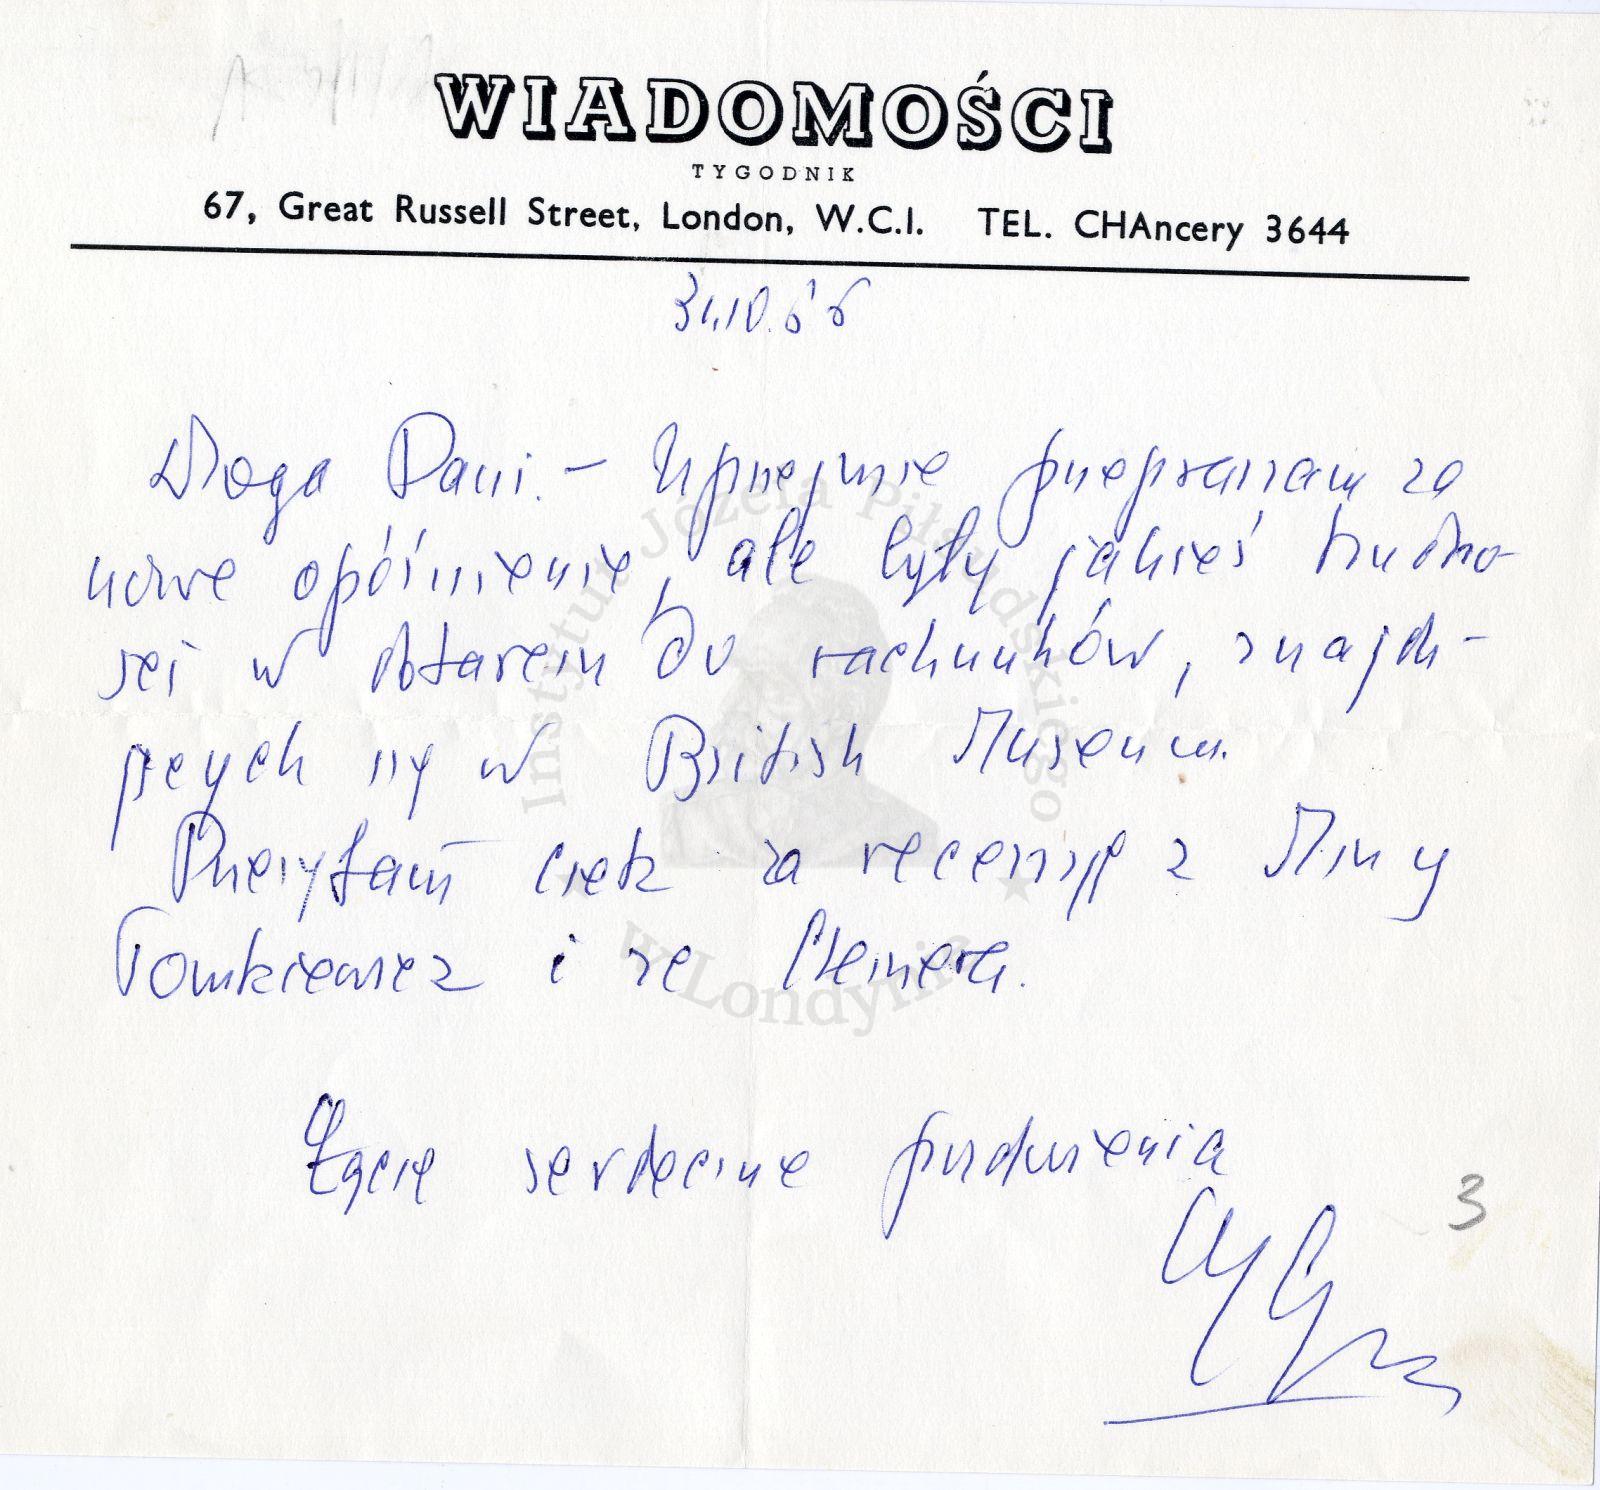 WIADOMOŚCI
TYGODNIK
67, Great Russell Street, London, W.C.I. TEL. CHAncery 3644
31.10.66
Droga Pani. – Uprzejmie przepraszam za
nowe opóźnienie, ale były jakieś trudno-
ści w dotarciu do rachunków, znajdu-
jących się w British Museum.
Przesyłam czek za recenzję z
Tomkiewicz i ze Steinera.
Łączę serdeczne pozdrowienia
3
Instytut Józefa Piłsudskiego
w Londynie